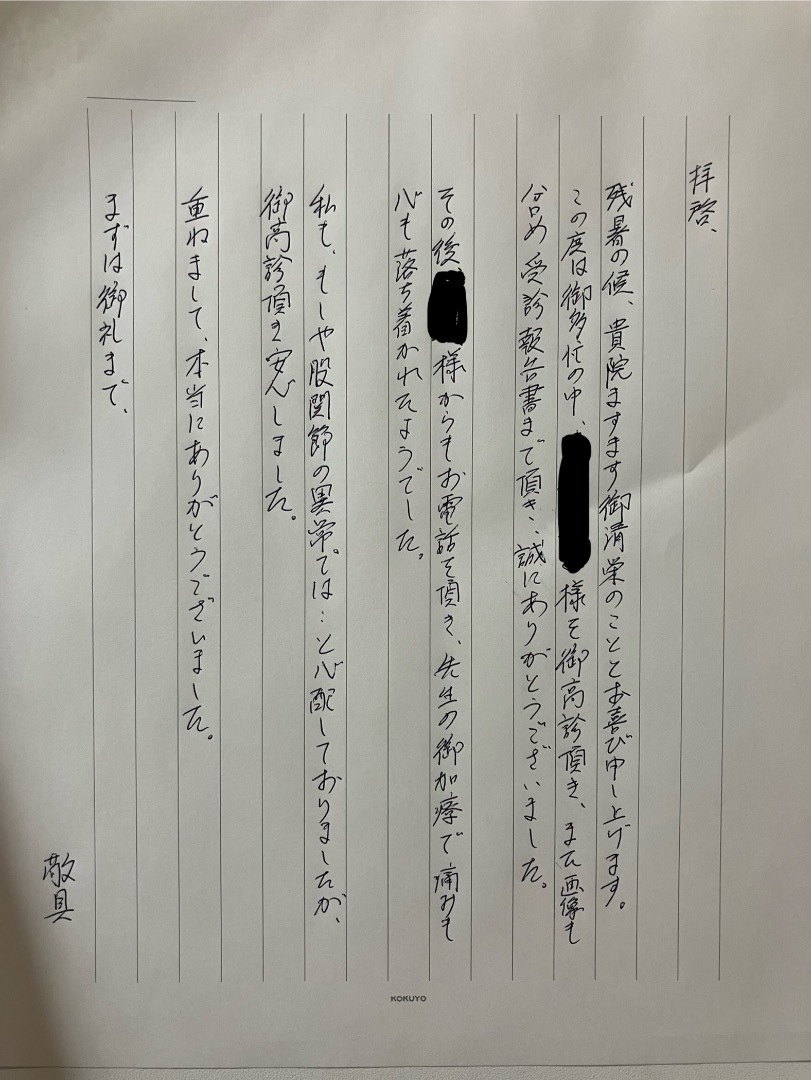 拝啓、
残暑の候、貴院ますます御清栄のこととお喜び申し上げます。
この度は御多忙の中、様を御高診頂き、また画像も
含め受診報告書まで頂き、誠にありがとうございました。
その後様からもお電話を頂き、先生の御加療で痛みも
心も落ち着かれたようでした。
私も、もしや股関節の異常では…と心配しておりましたが、
御高診頂き安心しました。
重ねまして、本当にありがとうございました。
まずは御礼まで、
敬具
KOKUYO